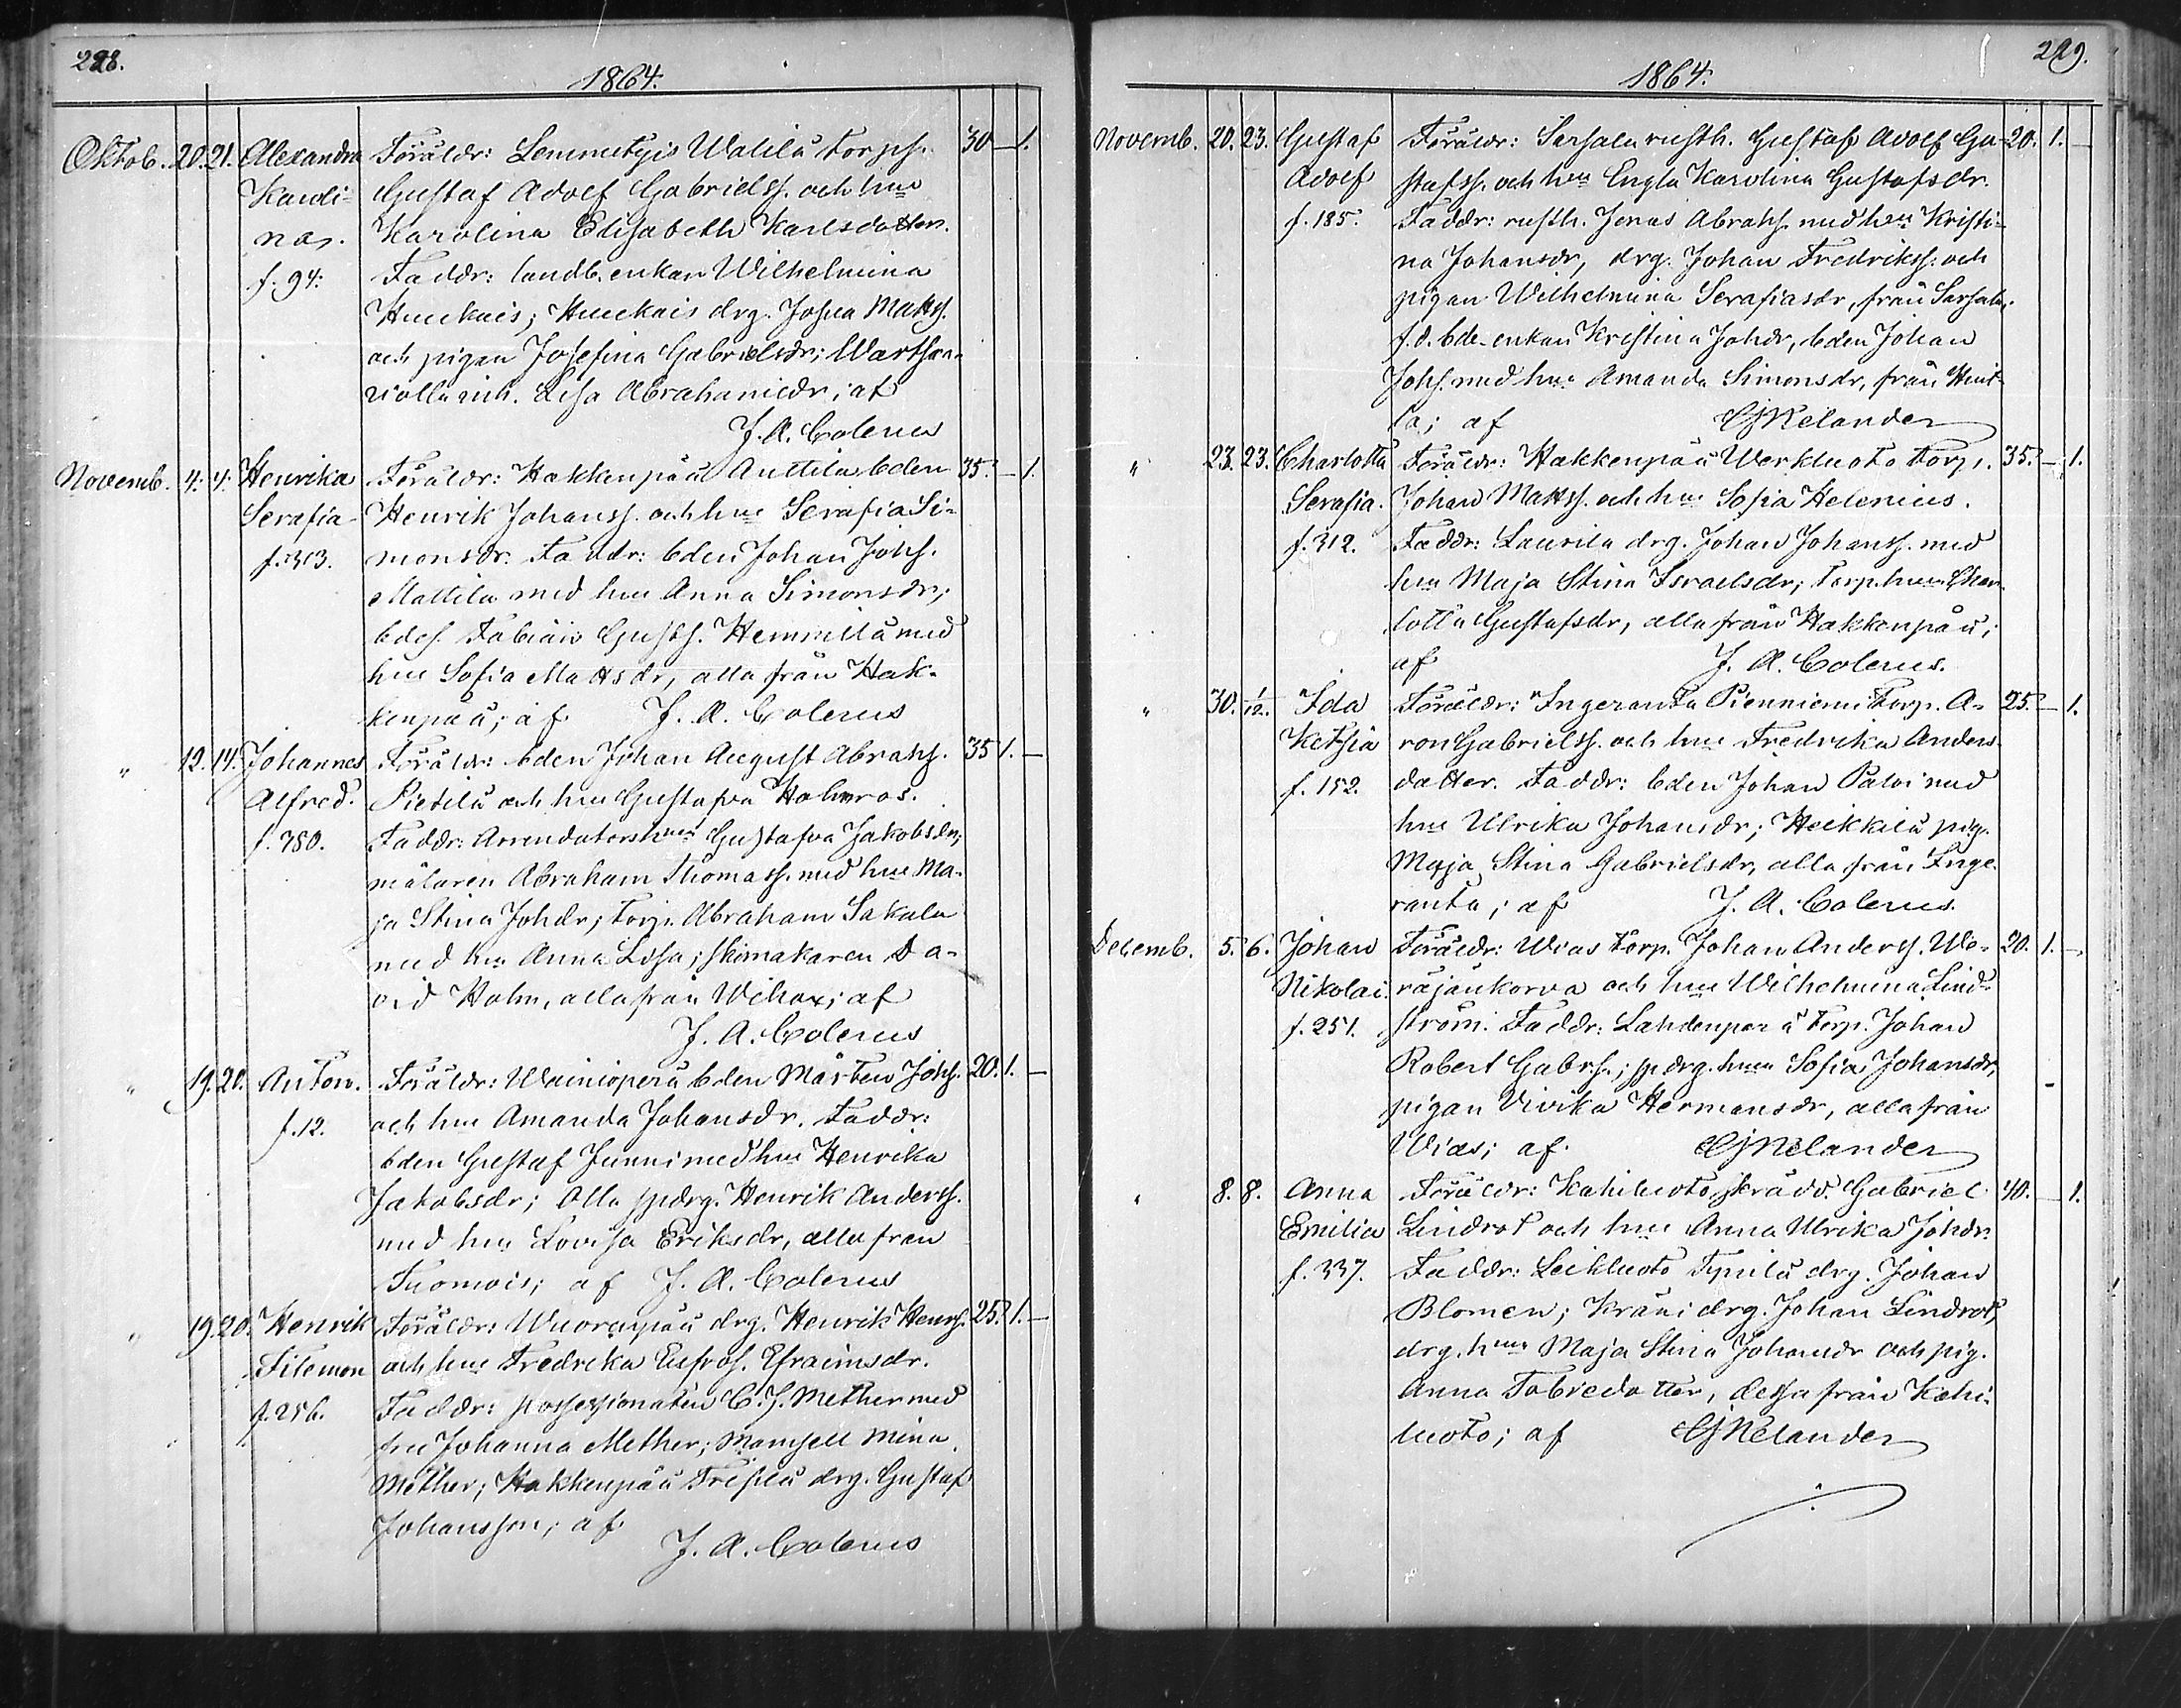 228.
1864.
Oktob. 20. 21. Alexandra Föräldr: Lemmetyis Walilä torps. 30 — 1.
Karoli- Gustaf Adolf Gabrielss. och hu
na. Karolina Elisabeth Karlsdotter.
f. 94. Faddr: landb. enkan Wilhelmina
Huukais; Huukais drg. Josua Matts.
och pigan Josefina Gabrielsdr; Wartsan-
inh. Lisa Abrahamsdr; af
J. A. Colerus
Novemb. 4. 4. Henrika Föräldr: Hakkenpää Anttila bden 35. — 1.
Serafia Henrik Johanss. och hu Serafia Si-
f. 313. monsdr. Faddr: bden Johan Johs.
Mattila med hu Anna Simonsdr;
bdes. Fabian Gusts. Hemmilä med
hu Sofia Mattsdr, alla från Hak-
kenpää; af J. A. Colerus
" 12. 14. Johannes Föräldr: bden Johan August Abrahs. 35 1. —
Alfred. Pietilä och hu Gustafva Holmros.
f. 780. Faddr: Arrendatorshu Gustafva Jakobsdr,
målaren Abraham Thomass. med hu Ma-
ja Stina Johdr; torp. Abraham Sakala
med hu Anna Lisa; skomakaren Da-
vid Holm, alla från Wehax; af
J. A. Colerus
" 19. 20. Anton. Föräldr: Wäiniöperä bden Mårten Johs. 20. 1. —
f. 12. och hu Amanda Johansdr. Faddr:
bden Gustaf Junni med hu Henrika
Jakobsdr; Olla spdrg. Henrik Anderss.
med hu Lovisa Eriksdr, alla från
Tuomois; af J. A. Colerus
" 19. 20. Henrik Föräldr: Wuorenpää drg. Henrik Henrs. 25. 1. —
Filemon och hu Fredrika Eufros. Efraimsdr.
f. 256. Faddr: possessionaten C. J. Mether med
fru Johanna Mether; Mamsell Mina
Mether; Hakkenpää drg. Gustaf
Johansson; af
J. A. Colerus
229.
1864.
Novemb. 20. 23. Gustaf Föräldr: Sarsala rusth. Gustaf Adolf Gu- 20. 1. —
Adolf stafss. och hu Engla Karolina Gustafsdr.
f. 185. Faddr: rusth. Jonas Abrahs. med hu Kristi-
na Johansdr, drg. Johan Fredrikss. och
pigan Wilhelmina Serafiasdr, från Sarsala,
f. d. bde-enkan Kristina Johdr, bden Johan
Johs. med hu Amanda Simonsdr, från
la; af CJNelander
" 23. 23. Charlotta Föräldr: Hakkenpää Werkluoto torp. 35. — 1.
Serafia. Johan Mattss. och hu Sofia Helenius.
f. 312. Faddr: Laurila drg. Johan Johanss. med
hu Maja Stina Israelsdr; torp. hu Char-
lotta Gustafsdr, alla från Hakkenpää;
af J. A. Colerus.
" 30. 1/12. Ida Föräldr: Ingeranta Pienniemi torp. A- 25. — 1.
Ketsia ron Gabrielss. och hu Fredrika Anders-
f. 152. dotter. Faddr: bden Johan Palvi med
hu Ulrika Johansdr; Heikkilä pig.
Maja Stina Gabrielsdr, alla från Inge-
ranta; af J. A. Colerus.
Decemb. 5. 6. Johan Föräldr: Wias torp. Johan Anderss. We- 20. 1. —
Nikolai. räjänkorva och hu Wilhelmina Lind-
f. 251. ström. Faddr: Lahdenperä torp. Johan
Robert Gabrs.; spdrg. hu Sofia Johansdr,
pigan Vivika Hermansdr, alla från
Wias; af CJNelander
" 8. 8. Anna Föräldr: Kahiluoto skrädd. Gabriel 40. — 1.
Emilia Lindrot och hu Anna Ulrika Johdr.
f. 337. Faddr: Leikluoto drg. Johan
Blomen; Kräni drg. Johan Lindrot,
drg. hu Maja Stina Johansdr och pig.
Anna Tobiedotter, dessa från Kahi-
luoto; af CJNelander